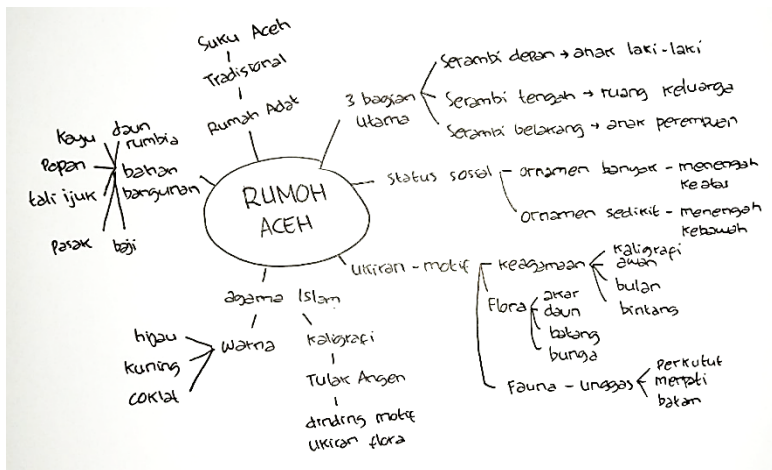 RUMOH
ACEH
Suku Aceh
Tradisional
Rumah Adat
3 bagian
utama
Serambi depan → anak laki-laki
Serambi tengah → ruang keluarga
Serambi belakang → anak perempuan
Status sosial - ornamen banyak - menengah
keatas
ornamen sedikit - menengah
kebawah
ukiran - motif
keagamaan
kaligrafi
awan
bulan
bintang
Flora
akar
daun
batang
bunga
Fauna - unggas
perkutut
merpati
balam
agama Islam
Warna
hijau
kuning
coklat
kaligrafi
Tulak Angen
dinding motif
ukiran flora
bahan
bangunan
kayu
daun
rumbia
papan
tali ijuk
pasak
baji